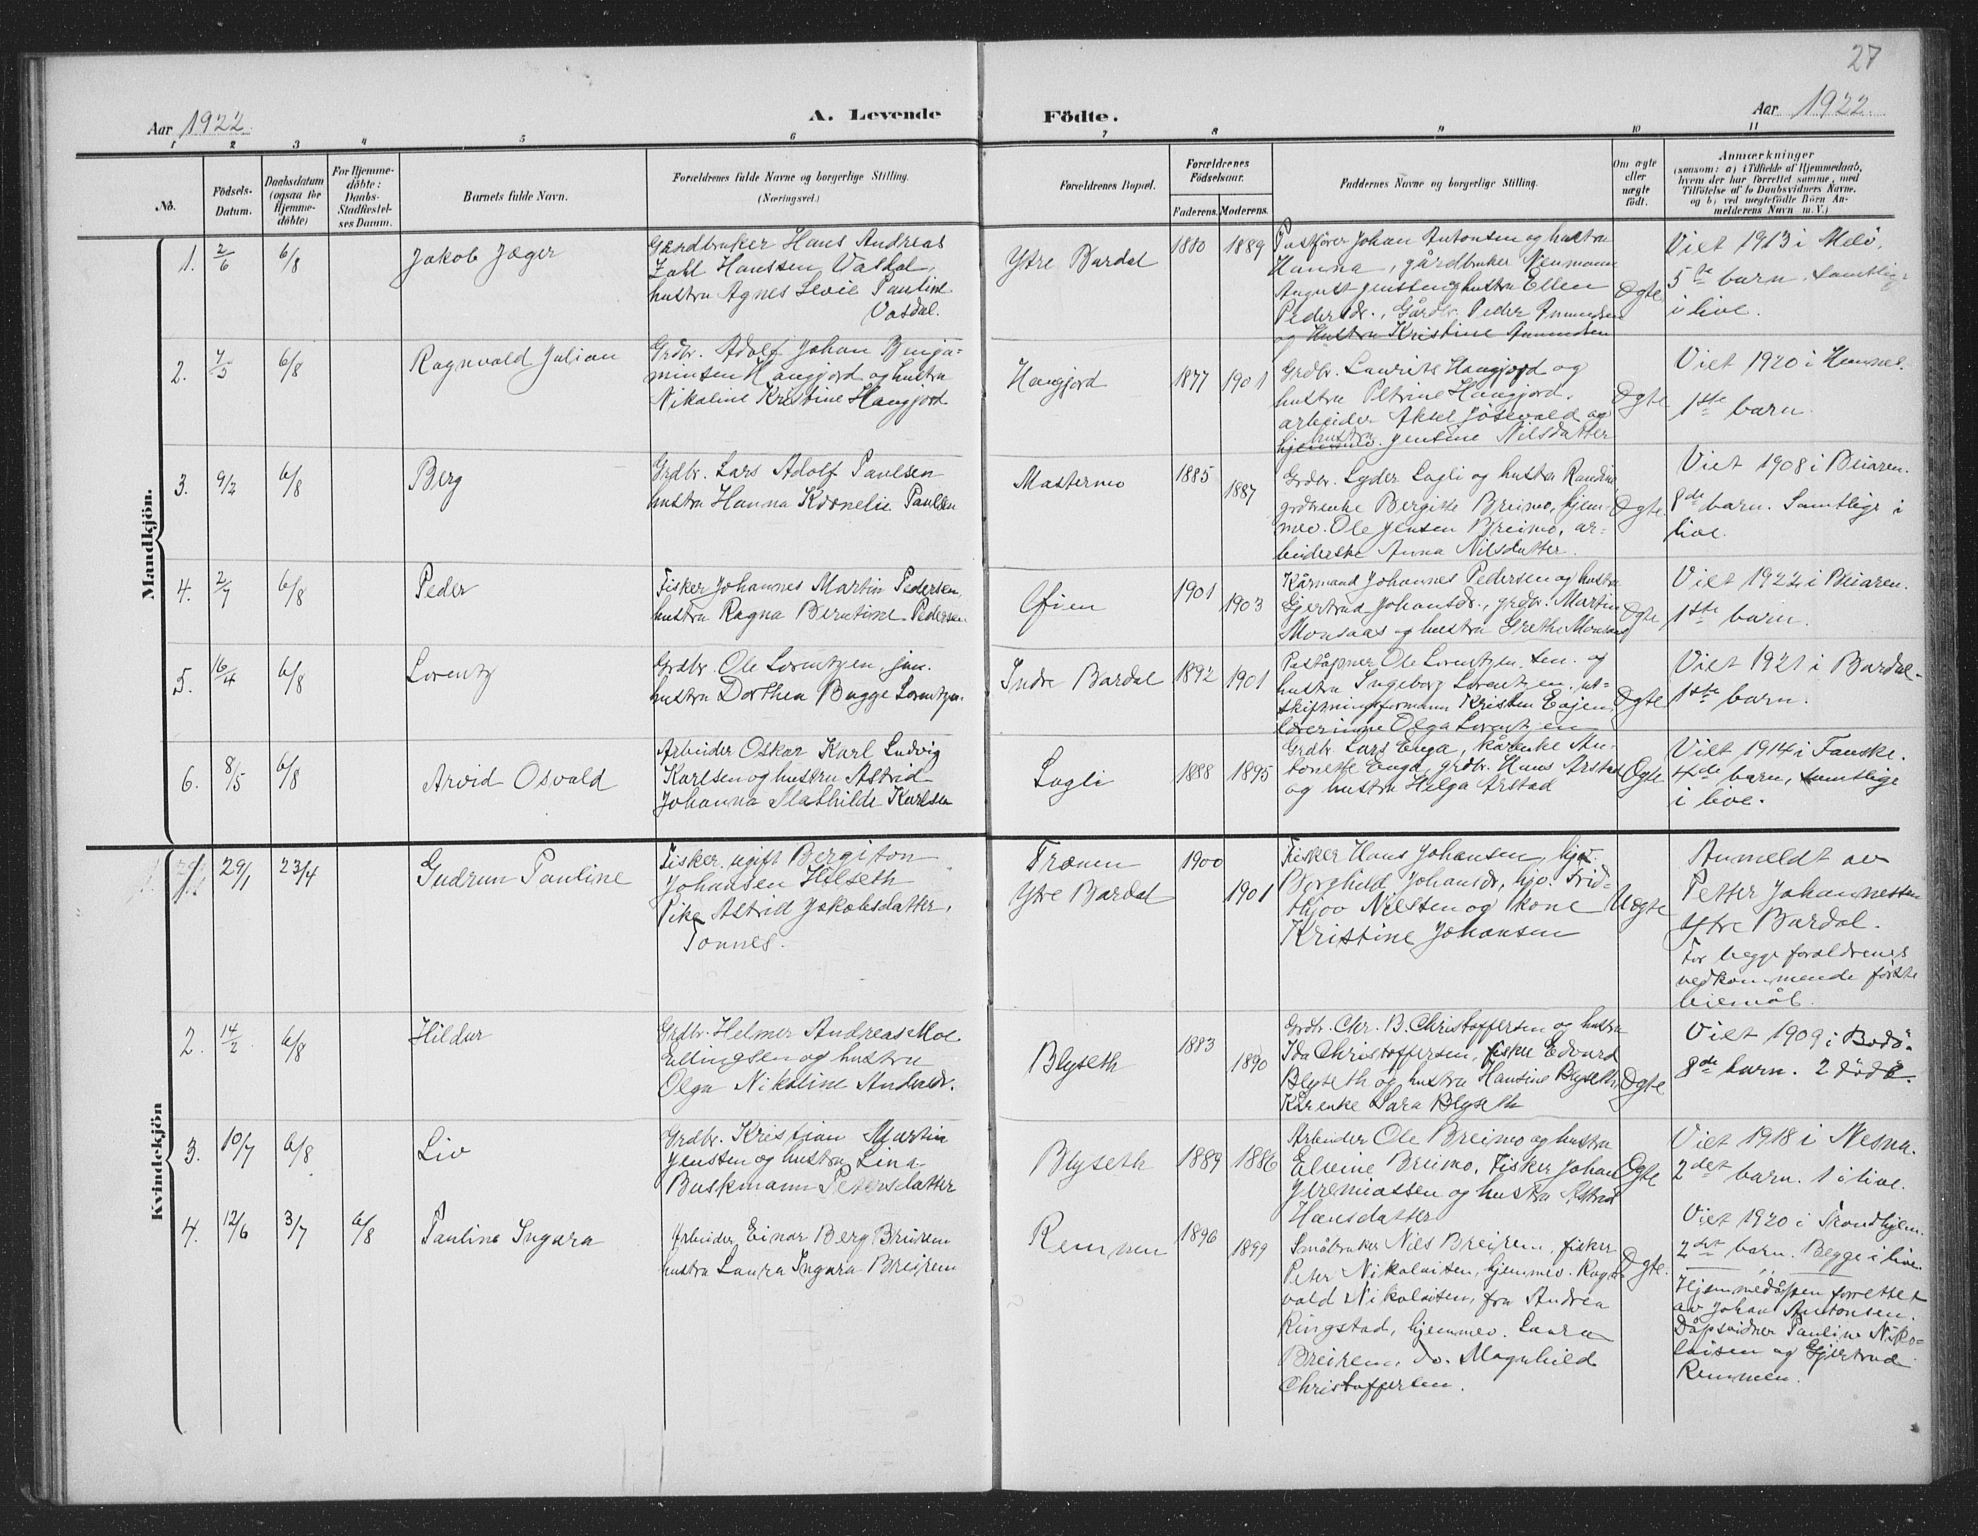 27
Aar 1922.
A. Levende
Födte.
Aar 1922.
1 2 3 4 5 6 7 8 9 10 11
No.
Födsels-
Datum.
Daabsdatum
(ogsaa for
Hjemme-
döbte)
For Hjemme-
döbte:
Daabs-
Stadfæstel-
ses Datum.
Barnets fulde Navn.
Forældrenes fulde Navne og borgerlige Stilling.
(Næringsvei.)
Forældrenes Bopæl.
Forældrenes
Födselsaar.
Faderens. Moderens.
Faddernes Navne og borgerlige Stilling.
Om ægte
eller
uægte
født.
Anmærkninger
(saasom: a) i Tilfælde af Hjemmedaab,
hvem der har forrettet samme, med
Tilföielse af to Daabsvidners Navne.
og b) ved uægtefödte Börn An-
melderens Navn m. V.)
Mandkjön.
1. 2/6 6/8
Jakob Jæger
Gardbruker Hans Andreas
Zahl Hanssen Vasdal,
hustru Agnes Levie Pauline
Vasdal.
Ytre Bardal
1880 1889
Postfører Johan Antonsen og hustru
Hanna, gårdbruker Neumann
August Jenssen og hustru Ellen
Pedersdr., Gårdbr. Peder Amundsen
og hustru Kristine Amundsen
Ægte
Viet 1913 i Melö.
5te barn. Samtlige
i live.
2. 7/5 6/8
Ragnvald Julian
Grdbr. Adolf Johan Benja-
minsen Haugjord og hustru
Nikoline Kristine Haugjord
Haugjord
1877 1901
Grdbr. Laurits Haugjord og
hustru Petrine Haugjord,
arbeider Aksel Josevald og
hustru
Jensine Nilsdatter
Ægte
Viet 1920 i Hemnes.
1ste barn.
3. 9/2 6/8
Berg
Grdbr. Lars Adolf Paulsen
hustru Hanna Kornelie Paulsen
Mastermo
1885 1887
Grdbr. Lyder Lagli og hustru Randine
grdbrenke Bergitte Breimo, hjem-
mev. Ole Jensen Breimo, ar-
beiderske Anna Nilsdatter.
Ægte
Viet 1908 i Beiaren.
8de barn. Samtlige i
live.
4. 2/7 6/8
Peder
Fisker Johannes Martin Pedersen,
hustru Ragna Berntine Pedersen
Øien
1901 1903
Kårmand Johannes Pedersen og hustru
Gjertrud Johansdr., grdbr. Martin
Monsaas og hustru Grethe Monsaas
Ægte
Viet 1922 i Beiaren.
1ste barn.
5. 16/4 6/8
Lorentz
Grdbr. Ole Lorentzen, jun.
hustru Dorthea Bugge Lorentzen.
Indre Bardal
1892 1901
Poståpner Ole Lorentzen sen. og
hustru Ingeborg Lorentzen, ut-
skiftningsformann Kristen Eajen,
lærerinne Olga Lorentzen
Ægte
Viet 1921 i Bardal.
1ste barn.
6. 8/5 6/8
Arvid Osvald
Arbeider Oskar Karl Ludvig
Karlsen og hustru Astrid
Johanna Mathilde Karlsen
Lagli
1888 1895
Grdbr. Lars Enga, kårenke An-
tonette Enga, grdbr. Hans Arstad
og hustru Helga Arstad
Ægte
Viet 1914 i Fauske.
4de barn, samtlige
i live.
Kvindekjön
1. 29/1 23/4
Gudrun Pauline
Fisker, ugift Bergiton
Johansen Hilseth
Pike Astrid Jakobsdatter,
Tonnes.
Trænen
Ytre Bardal
1900 1901
Fisker Hans Johansen, hjv.
Borghild Johansdr, hjv. Frid-
thjov Nilssen og kone
Kristine Johansen
Uægte
Anmeldt av
Petter Johannessen
Ytre Bardal.
For begge forældrenes
vedkommende første
leiemål.
2. 14/2 6/8
Hildur
Grdbr. Helmer Andreas Moe
Ellingsen og hustru
Olga Nikoline Andredr.
Blyseth
1883 1890
Grdbr. Chr. B. Christoffersen og hustru
Ida Christoffersen, fisker Edvard
Blyseth og hustru Hansine Blyseth,
Kårenke Sara Blyseth
Ægte
Viet 1909 i Bodö.
8de barn. 2 døde.
3. 10/7 6/8
Liv
Grdbr. Kristian Martin
Jenssen og hustru Lina
Buskmann Petersdatter
Blyseth
1889 1886
Arbeider Ole Breimo og hustru
Elvine Breimo, Fisker Johan
Jeremiassen og hustru Astrid
Hansdatter
Ægte
Viet 1918 i Nesna.
2det barn. 1 i live.
4. 12/6 3/7 6/8
Pauline Ingara
Arbeider Einar Berg Breiren
hustru Laura Ingara Breirem
Remmen
1896 1899
Småbruker Nils Breirem, fisker
Peter Nikolaisen, hjemmev. Ragn-
vald Nikolaisen, fru Andrea
Ringstad, hjemmev. Laura
Breirem, do. Magnhild
Christoffersen.
Ægte.
Viet 1920 i Trondhjem.
2det barn. Begge i live.
Hjemmedåpen forrettet
av Johan Antonsen.
Dåpsvidner Pauline Niko-
laisen og Gjertrud
Remmen.